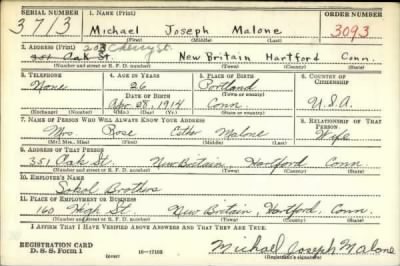 SERIAL NUMBER 1. NAME (Print) ORDER NUMBER
3713 Michael Joseph Malone 3093
(First) (Middle) (Last)
2. ADDRESS (Print) 203 Cherry St.
351 Oak St. New Britain Hartford Conn.
(Number and street or R. F. D. number) (Town) (County) (State)
3. TELEPHONE 4. AGE IN YEARS 5. PLACE OF BIRTH 6. COUNTRY OF CITIZENSHIP
None 26 Portland
DATE OF BIRTH (Town or county)
Apr. 28, 1914 Conn. U.S.A.
(Exchange) (Number) (Mo.) (Day) (Yr.) (State or country)
7. NAME OF PERSON WHO WILL ALWAYS KNOW YOUR ADDRESS 8. RELATIONSHIP OF THAT PERSON
Mrs. Rose Esther Malone Wife
(Mr., Mrs., Miss) (First) (Middle) (Last)
9. ADDRESS OF THAT PERSON
351 Oak St. New Britain, Hartford Conn
(Number and street or R. F. D. number) (Town) (County) (State)
10. EMPLOYER'S NAME
Sokol Brothers
11. PLACE OF EMPLOYMENT OR BUSINESS
160 High St. New Britain, Hartford, Conn.
(Number and street or R. F. D. number) (Town) (County) (State)
I AFFIRM THAT I HAVE VERIFIED ABOVE ANSWERS AND THAT THEY ARE TRUE.
REGISTRATION CARD
D. S. S. FORM 1 (over) Michael Joseph Malone
(Registrant's signature)